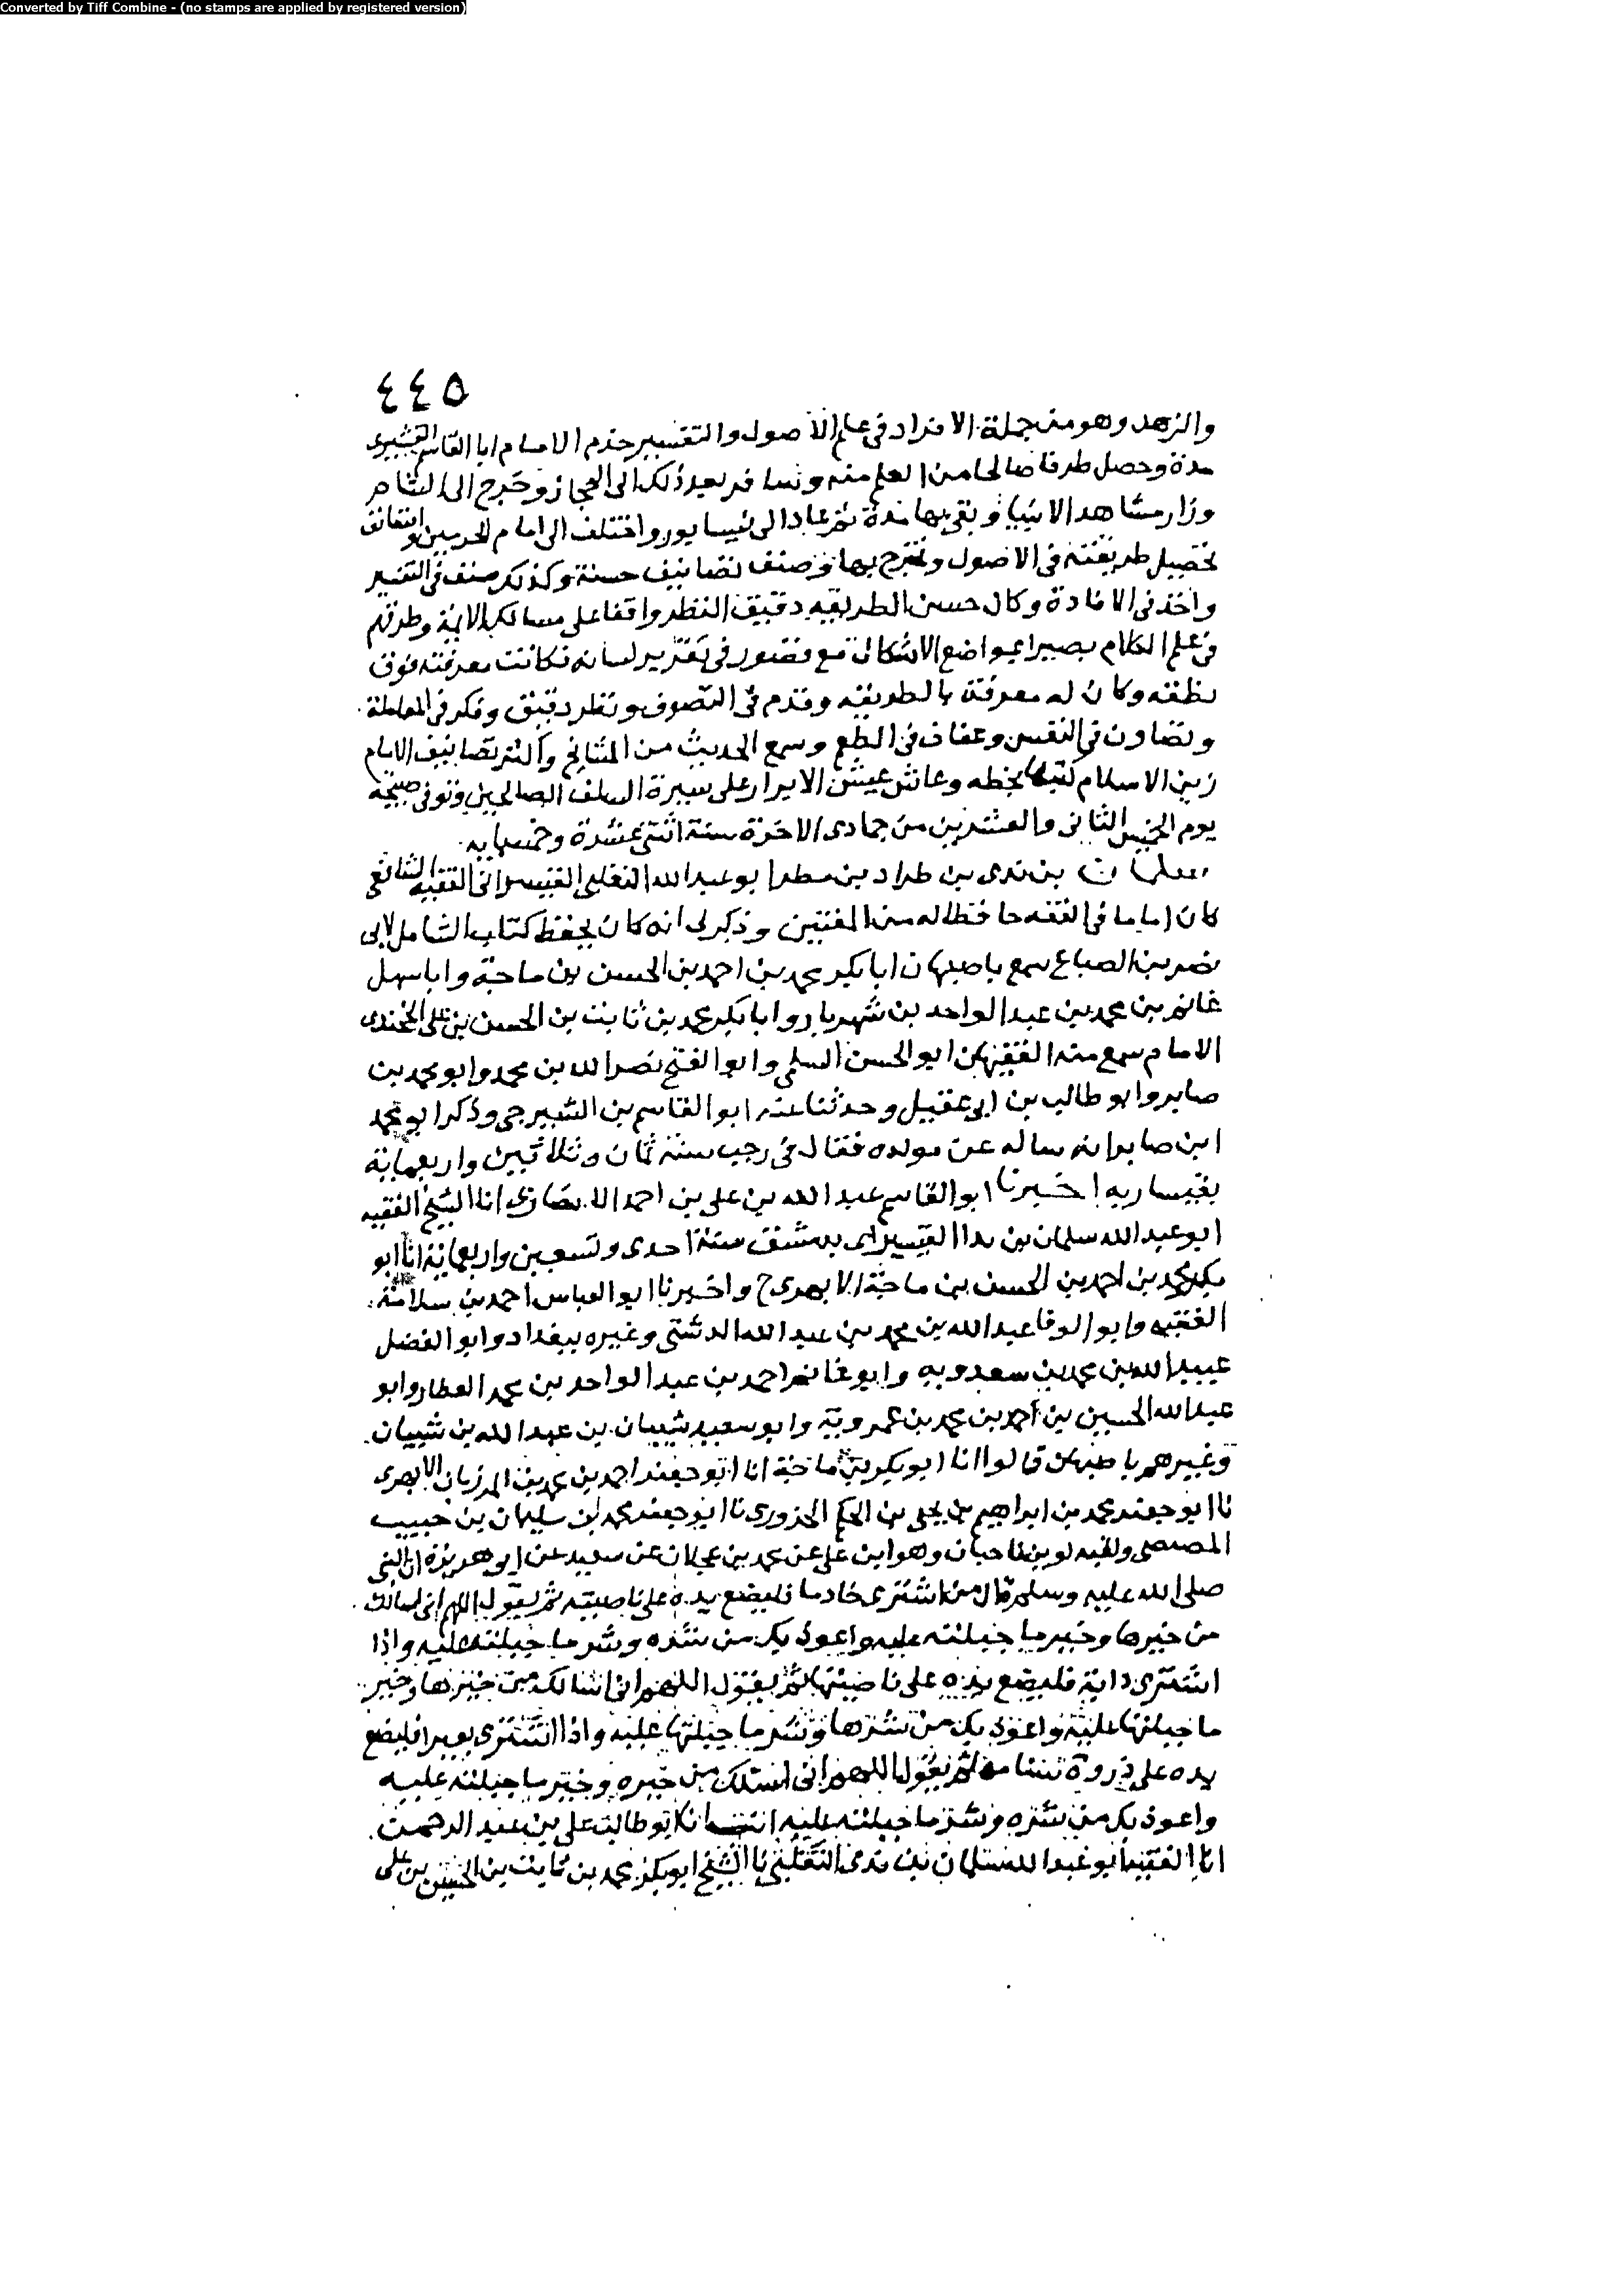 Converted by Tiff Combine - (no stamps are applied by registered version)
٤٤٥
والزهد وهو من جملة الافراد في علم الاصول والتفسير خدم الامام ابا القاسم القشيري
مدة وحصل طرفا صالحا من العلم منه وسافر بعد ذلك الى الحجاز وخرج الى الشام
وزار مشاهد الانبيا وبقي بها مدة ثم عاد الى نيسابور واختلف الى امام الحرمين واتفق
تحصيل طريقته في الاصول وتخرج بها وصنف تصانيف حسنة وكذلك صنف في التفسير
واخذ في الافادة وكان حسن الطريقه دقيق النظر واقفا على مسالك الايمة وطرقهم
في علم الكلام بصيرا بمواضع الاشكال مع قصور في تقرير لسانه فكانت معرفته فوق
نطقه وكان له معرفة بالطريقه وقدم في التصوف ونظر دقيق وفكر في المعاملة
وتصاون في النفس وعفاف في الطعم وسمع الحديث من المشايخ واكثر تصانيف الامام
زين الاسلام كتبها بخطه وعاش عيش الابرار على سيرة السلف الصالحين وتوفي صبيحة
يوم الخميس الثاني والعشرين من جمادى الاخرة سنة اثنتي عشرة وخمسمايه
سلمان بن ندى بن طراد بن مطر ابو عبد الله التغلبي القيسراني الفقيه الشافعي
كان اماما في الفقه حافظا له من المفتين وذكر لي انه كان يحفظ كتاب الشامل لابي
نصر بن الصباع سمع باصبهان ابا بكر محمد بن احمد بن الحسن بن ماجة وابا سهل
غانم بن محمد بن عبد الواحد بن شهريار وابا بكر محمد بن ثابت بن الحسن بن علي الخجندي
الامام سمع منه الفقيهان ابو الحسن السلمي وابو الفتح نصر الله بن محمد وابو محمد بن
صابر وابو طالب بن ابي عقيل وحدثنا عنه ابو القاسم بن الشيرجي وذكر ابو محمد
ابن صابر انه ساله عن مولده فقال في رجب سنة ثمان وثلاثين واربعماية
بقيساريه اخبرنا ابو القاسم عبد الله بن علي بن احمد الانصاري انا الشيخ الفقيه
ابو عبد الله سلمان بن ندا القيسراني بدمشق سنة احدى وتسعين واربعماية انا ابو
بكر محمد بن احمد بن الحسن بن ماجة الابهري ح واخبرنا ابو العباس احمد بن سلامة
الفقيه وابو الوفا عبد الله بن محمد بن عبد الله الدشتي وغيره ببغداد وابو الفضل
عبيد الله بن محمد بن سعدويه وابو غانم احمد بن عبد الواحد بن محمد العطار وابو
عبد الله الحسين بن احمد بن محمد بن عمرويه وابو سعيد شيبان بن عبد الله بن شيبان
وغيرهم باصبهان قالوا انا ابو بكر بن ماجة انا ابو جعفر احمد بن محمد بن المرزبان الابهري
نا ابو جعفر محمد بن ابراهيم بن يحيى بن الحكم الحزوري نا ابو جعفر محمد بن سليمان بن حبيب
المصيصي ولقبه لوين نا حبان وهو ابن علي عن محمد بن عجلان عن سعيد عن ابو هريرة ان النبي
صلى الله عليه وسلم قال من اشترى خادما فليضع يده على ناصيته ثم ليقول اللهم اني اسالك
من خيرها وخير ما جبلته عليه واعوذ بك من شره وشر ما جبلته عليه واذا
اشترى دابة فليضع يده على ناصيتها ثم يقول اللهم اني اسالك من خيرها وخير
ما جبلتها عليه واعوذ بك من شرها وشر ما جبلتها عليه واذا اشترى بعيرا فليضع
يده على ذروة سنامه ثم يقول اللهم اني اسئلك من خيره وخير ما جبلته عليه
واعوذ بك من شره وشر ما جبلته عليه ابو طالب علي بن عبد الرحمن
انا الفقيه ابو عبد الله سلمان بن ندى التغلبي نا الشيخ ابو بكر محمد بن ثابت بن الحسن بن علي